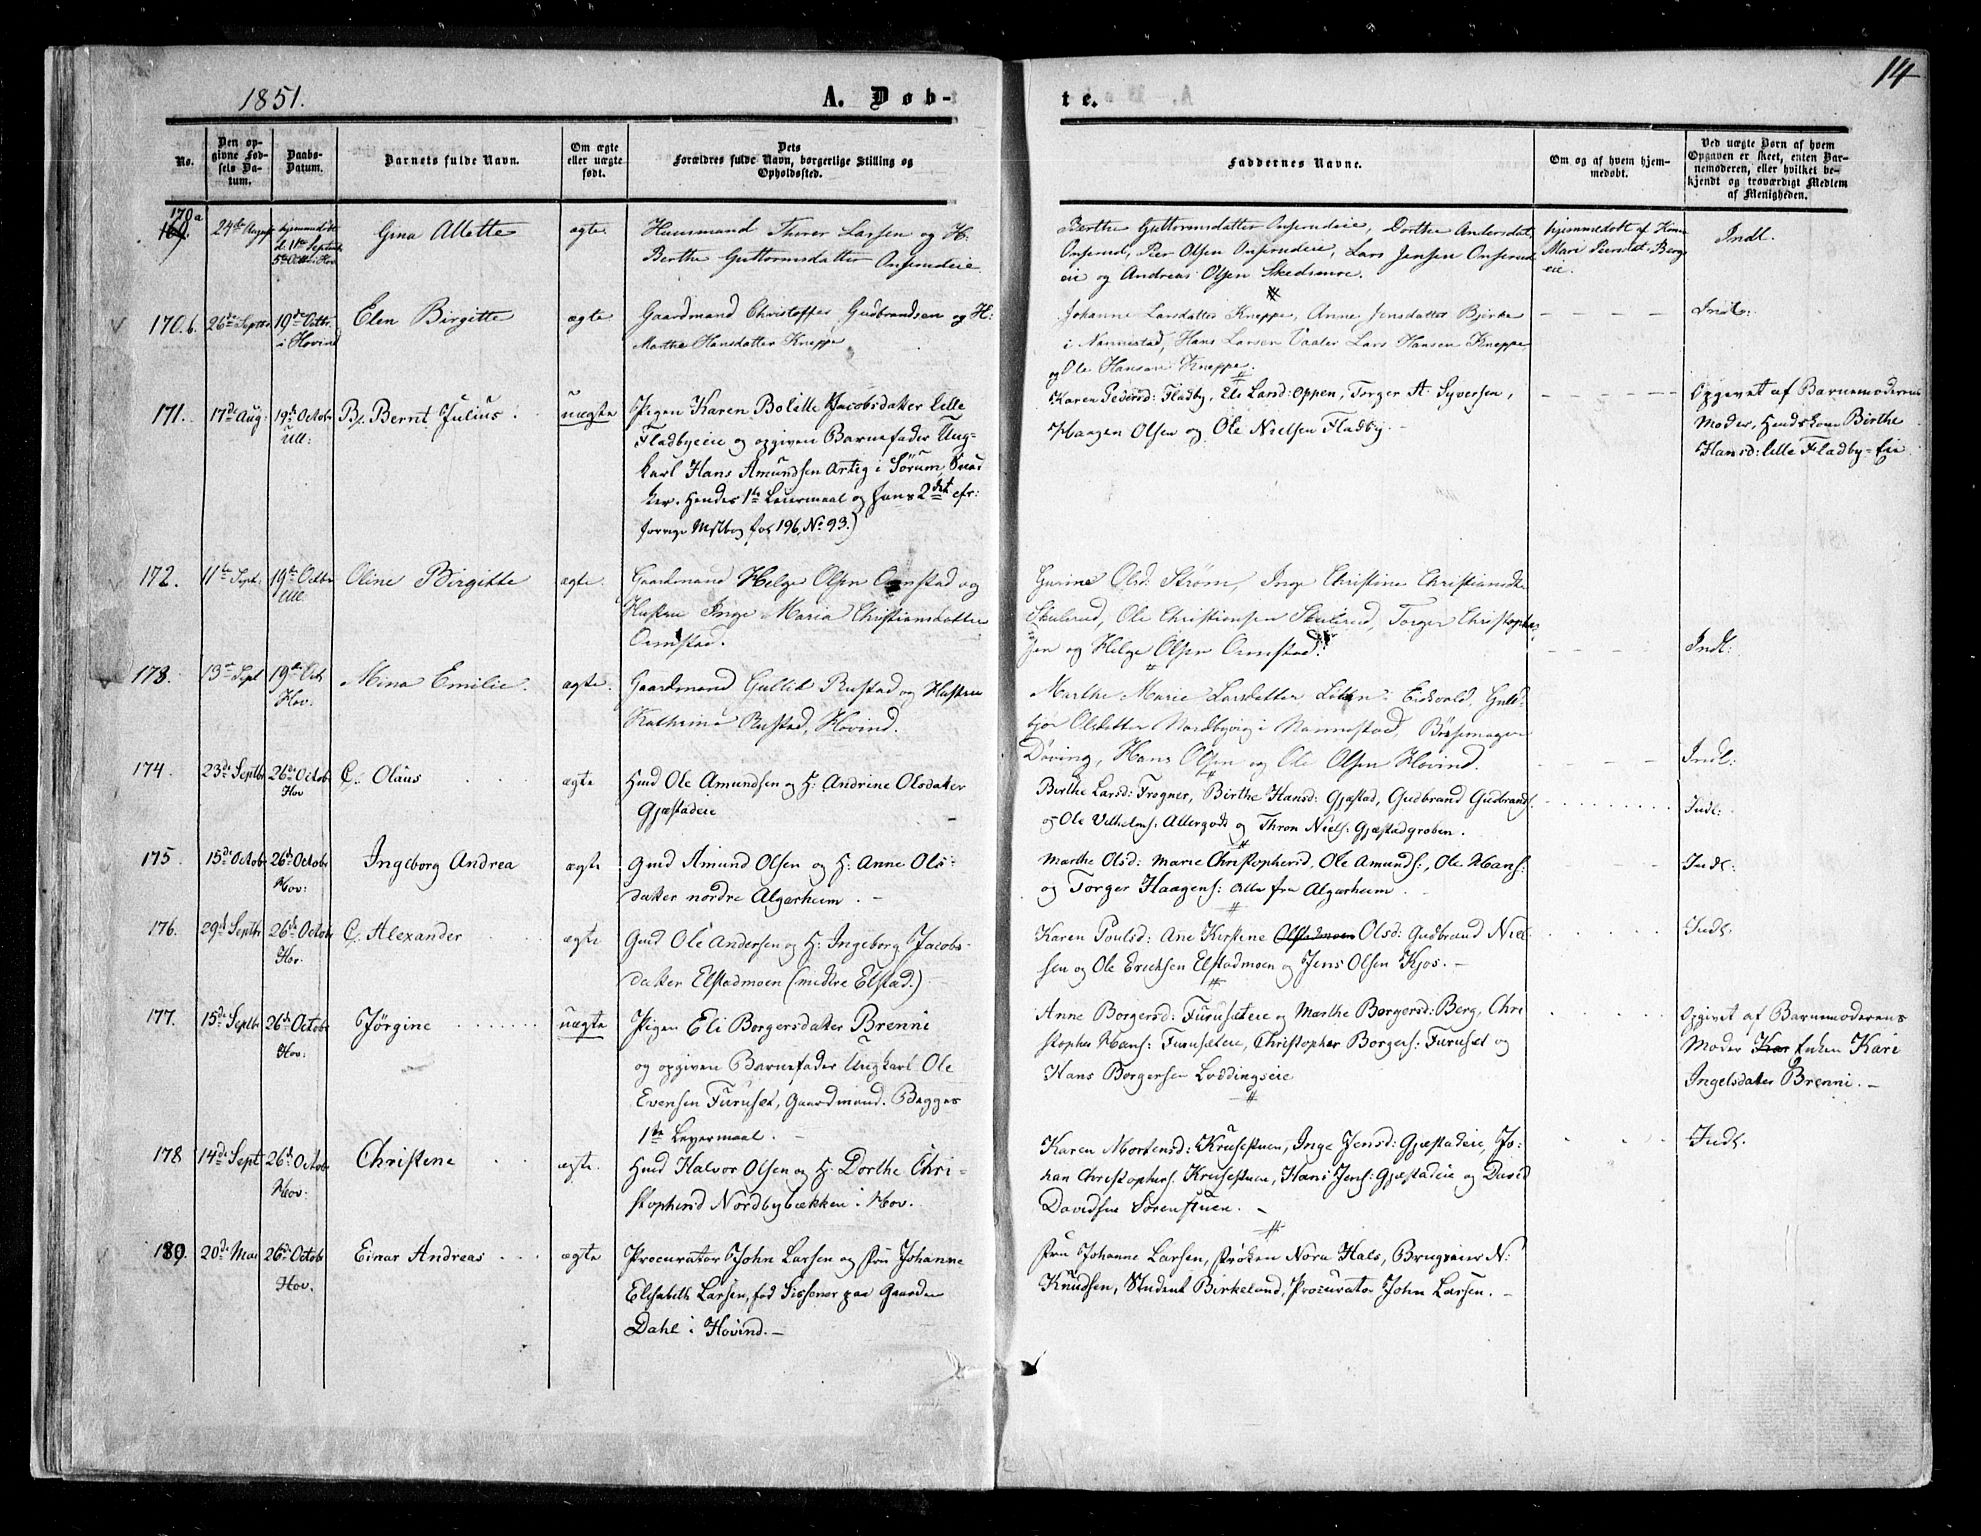 1851.
A. Døb-
te.
14
No.
Den op-
givne Fød-
sels Da-
tum.
Daabs-
Datum.
Barnets fulde Navn.
Om ægte
eller uægte
født.
Dets
Forældres fulde Navn, borgerlige Stilling og
Opholdssted.
Faddernes Navne.
Om og af hvem hjem-
medøbt.
Ved uægte Børn af hvem
Opgaven er skeet, enten Bar-
nemoderen, eller hvilket be-
kjendt og troværdigt Medlem
af Menigheden.
170a
169.
24de August
hjemmedøbt
d. 11te Septemb
5te Octbr Hov
Gina Allette
ægte.
Huusmand Thorer Larsen og H.
Berthe Guttormsdatter Onsrudeie
Berthe Guttormsdatter Onsrudeie, Dorthe Andersdat.
Onsrud, Peer Olsen Onsrudeie, Lars Jensen Onsrud-
eie og Andreas Olsen Skedsmoe.
hjemmedøbt af Kone
Mari Pedersdat. Berg-
eie.
Indl.
170.b.
26de Septbr
19de Octbr.
i Hovind
Elen Birgitte
ægte
Gaardmand Christoffer Gudbrandsen og H:
Marthe Hansdatter Kneppe
Johanne Larsdatter Kneppe, Anne Jensdatter Bjerke
i Nannestad, Hans Larsen Vaaler Lars Hansen Kneppe
og Ole Hansen Kneppe.
Indl:
171.
17d Aug:
19de Octobr
Ull:
B. Bernt Julius.
uægte
Pigen Karen Bolette Jacobsdatter lille
Fladbyeie og opgiven Barnefader Ung-
karl Hans Amundsen Arteg i Sørum, Snedk
ker. Hendes 1te Leiermaal og hans 2det cfr:
forrige Mstbog fol 196, No 93.)
Karen Pedersd: Fladby, Eli Larsd: Oppen, Torger A. Syversen,
Haagen Olsen og Ole Nielsen Fladby. -
Opgivet af Barnemoderens
Moder, Huuskone Birthe
Hansd: lille Fladby-Eie
172.
11te Sept:
19de Octbr
Ull.
Oline Birgitte
ægte.
Gaardmand Helge Olsen Ormstad og
Hustru Inge Maria Christiansdatter
Ormstad.
Gurine Olsd: Strøm, Inge Christine Christiansdtr
Skulerud, Ole Christiansen Skulerud, Torger Christophs-
sen og Helge Olsen Ormstad.
Indl:
173.
13de Sept
19de Oct
Hov:
Mina Emilie.
ægte.
Gaardmand Gullik Rustad og Hustru
Kathrine Rustad, Hovind.
Marthe Marie Larsdatter Eidsvold, Guld-
bjør Olsdatter Nordbyvig i Nannestad, Børsemager
Døving, Hans Olsen og Ole Olsen Hovind.
Indl:
174.
23de Septbr
26de Octobr
Hov
C. Olaus
ægte
Hmd Ole Amundsen og H: Andrine Olsdatter
Gjæstadeie
Birthe Larsd: Frogner, Birthe Hansd: Gjæstad, Gudbrand Gudbrands.
og Ole Vilhelms: Allergodt og Thron Niels: Gjæstadgroben.
Indl:
175.
15de Octobr
26de Octobr
Hov:
Ingeborg Andrea
ægte
Gmd Amund Olsen og H: Anne Ols-
datter nordre Algarheim. -
Marthe Olsd: Marie Christophersd, Ole Amunds:, Ole Hans:
og Torger Haagens: alle fra Algarheim.
Indl:
176.
29de Septbr
26de Octobr
Hov.
C. Alexander
ægte
Gmd Ole Andersen og H: Ingeborg Jacobs-
datter Elstadmoen (midtre Elstad.)
Karen Poulsd: Ane Kirstene Olstadmoen Olsd: Gudbrand Niel-
sen og Ole Ericksen Elstadmoen og Jens Olsen Kjos. -
Indl.
177.
15de Septbr
26de Octobr
Hov:
Jørgine
uægte
Pigen Eli Borgersdatter Brenni
og opgiven Barnefader Ungkarl Ole
Evensen Furuset, Gaardmand. Begges
1te Leyermaal. -
Anne Borgersd: Furuseteie og Marthe Borgersd: Berg, Chri
stopher Hans: Furuseteie, Christopher Borgers: Furuset og
Hans Borgersen Loddingseie
Opgivet af Barnemoderens
Moder Kar Enken Kari
Ingelsdatter Brenni. -
178
14de Sept
26de Octobr
Hov:
Christene
ægte.
Hmd Halvor Olsen og H: Dorthe Chri-
stophersd Nordbybækken i Hov.
Karen Mortensd: Krusestuen, Inge Jensd: Gjæstadeie, Jo-
han Christophers. Krusestuen, Hans Jens: Gjæstadeie og David
Davidsen Sørenstuen. -
Indl.
180.
20de Mai
26de Octob
Hov.
Einar Andreas
ægte
Procurator John Larsen og Fru Johanne
Elisabeth Larsen, fød Sissener paa Gaarden
Dahl i Hovind. -
Fru Johanne Larsen, Frøken Nora Hals, Brugseier N:
Knudsen, Student Birkeland, Procurator John Larsen. -